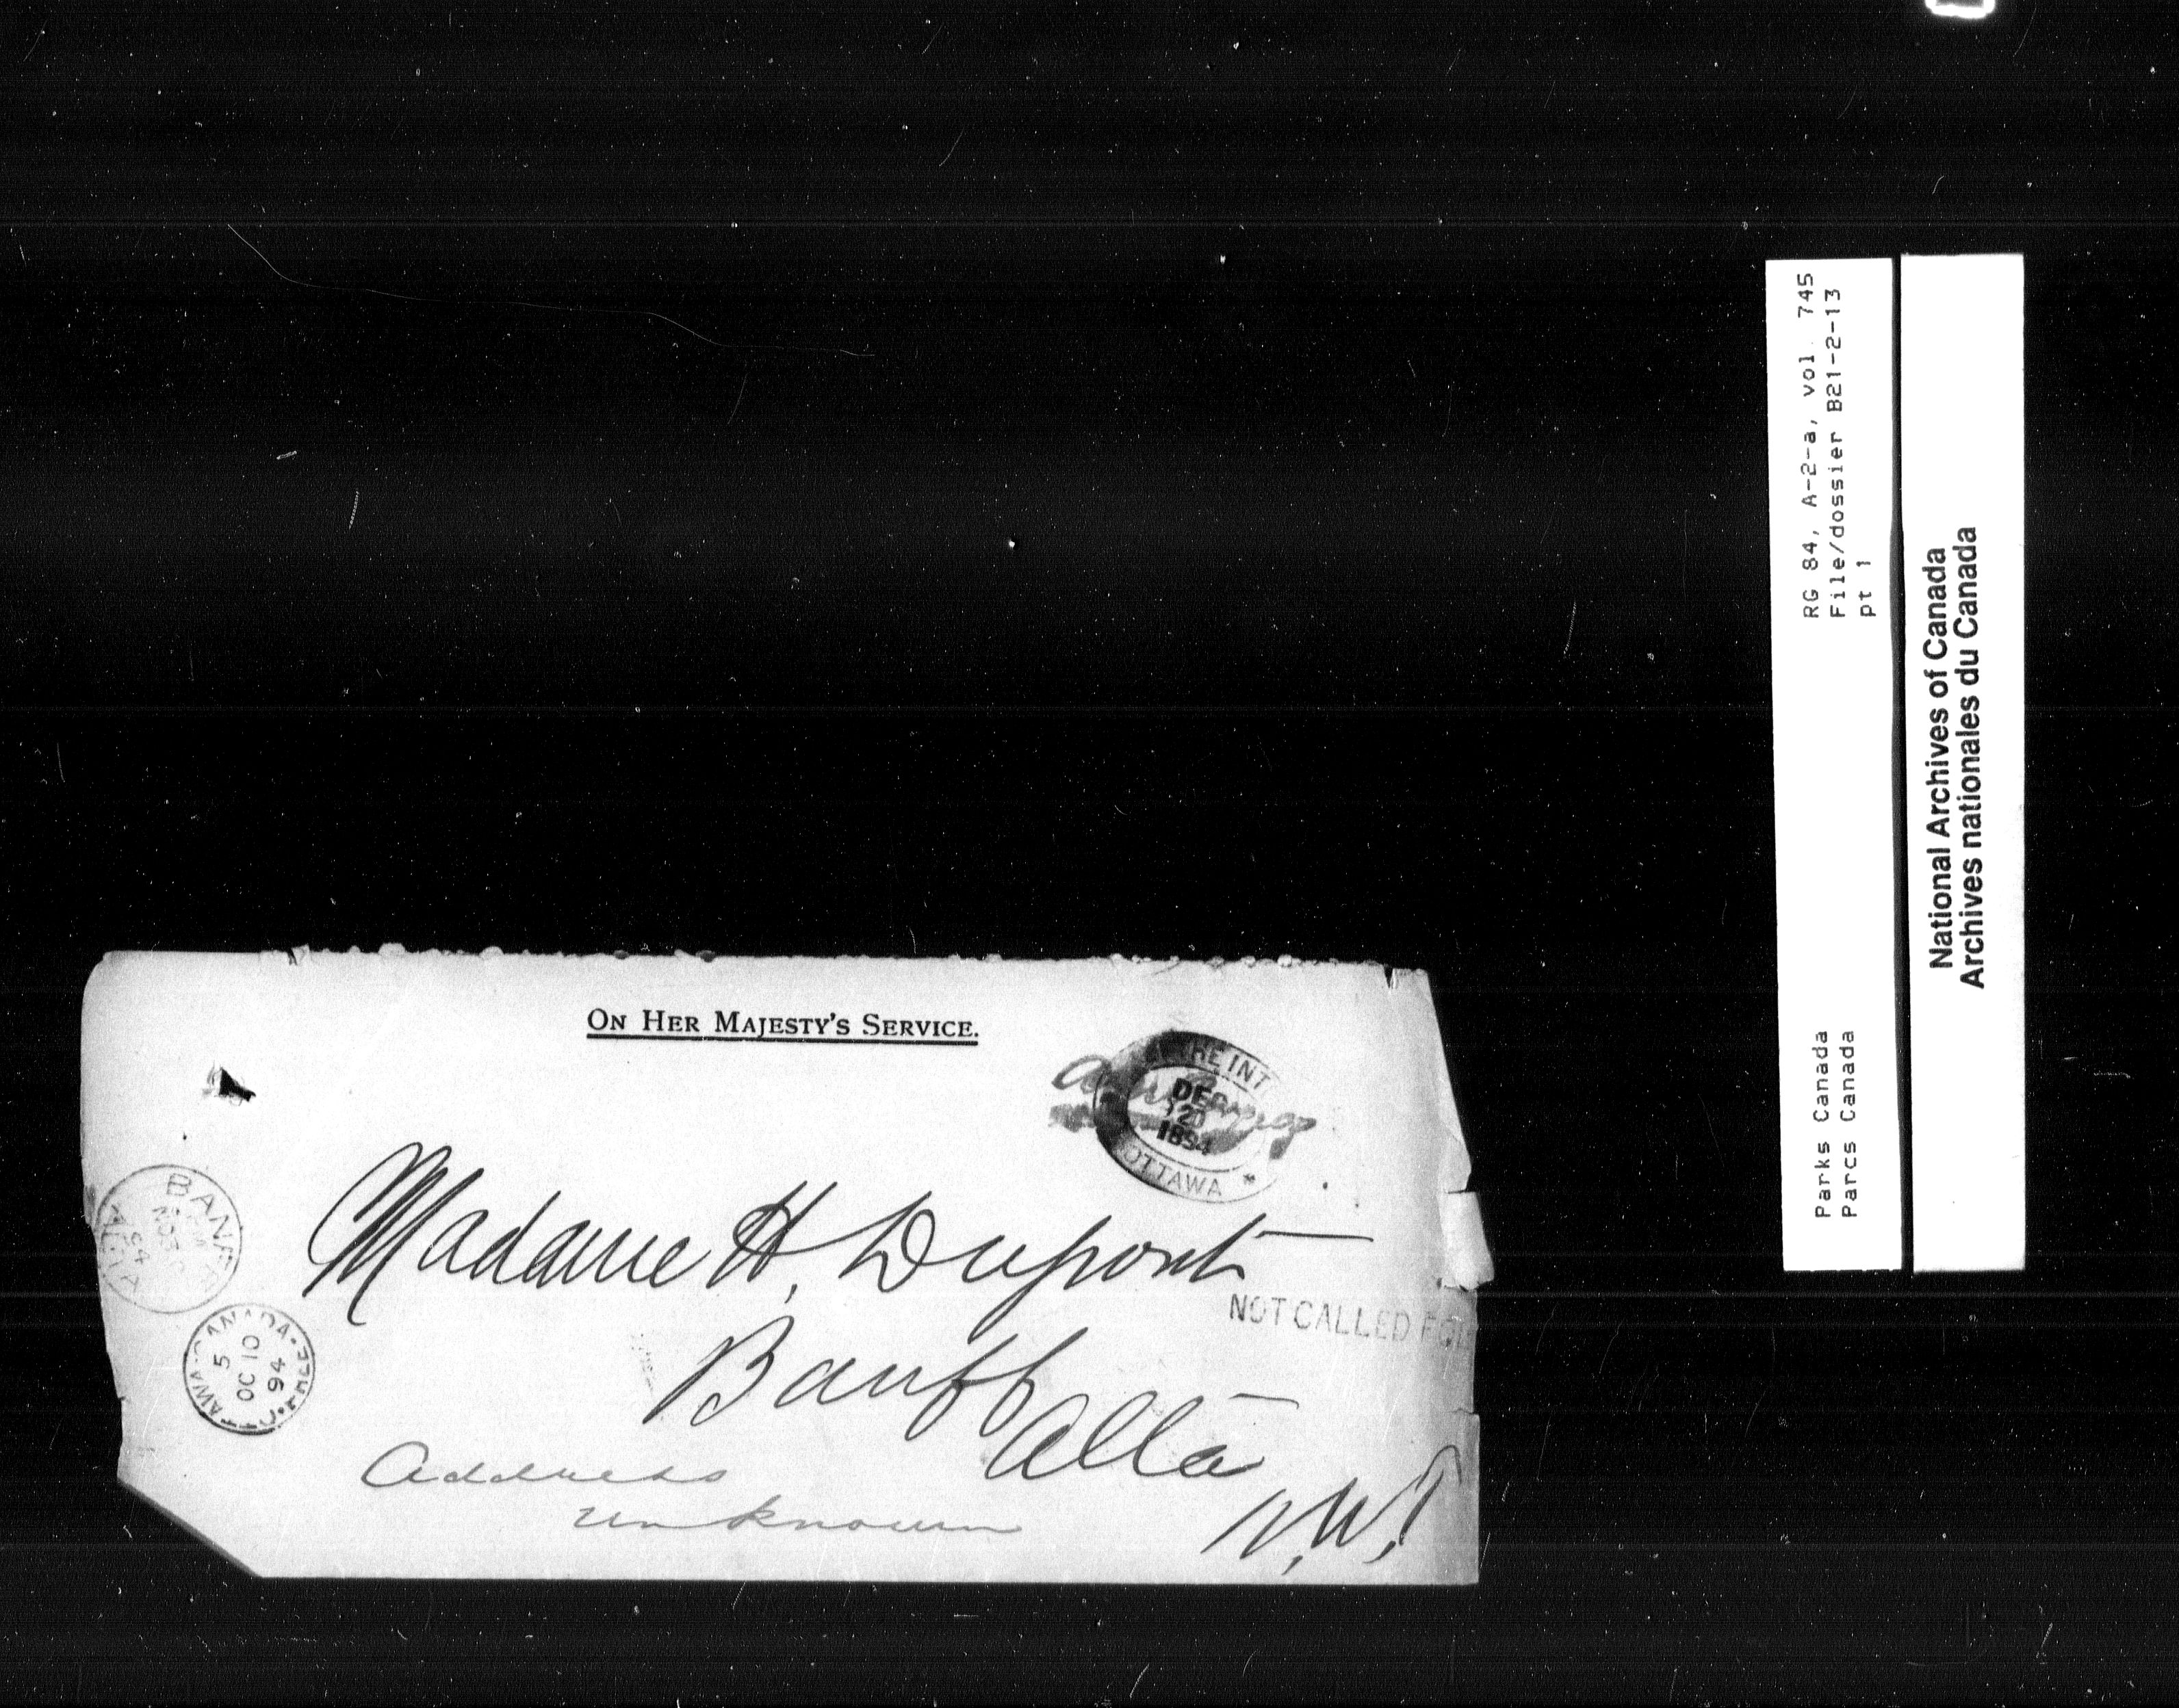 ON HER MAJESTY'S SERVICE.
THE INT
DEC
20
1894
OTTAWA *
Madame H. Dupont
NOT CALLED FOR
Banff
Alta
N.W.T
Address
unknown
BANFF
NO 30
94
ALTA
OTTAWA • CANADA •
5
OC 10
94
RG 84, A-2-a, vol. 745
File/dossier B21-2-13
pt 1
Parks Canada
Parcs Canada
National Archives of Canada
Archives nationales du Canada